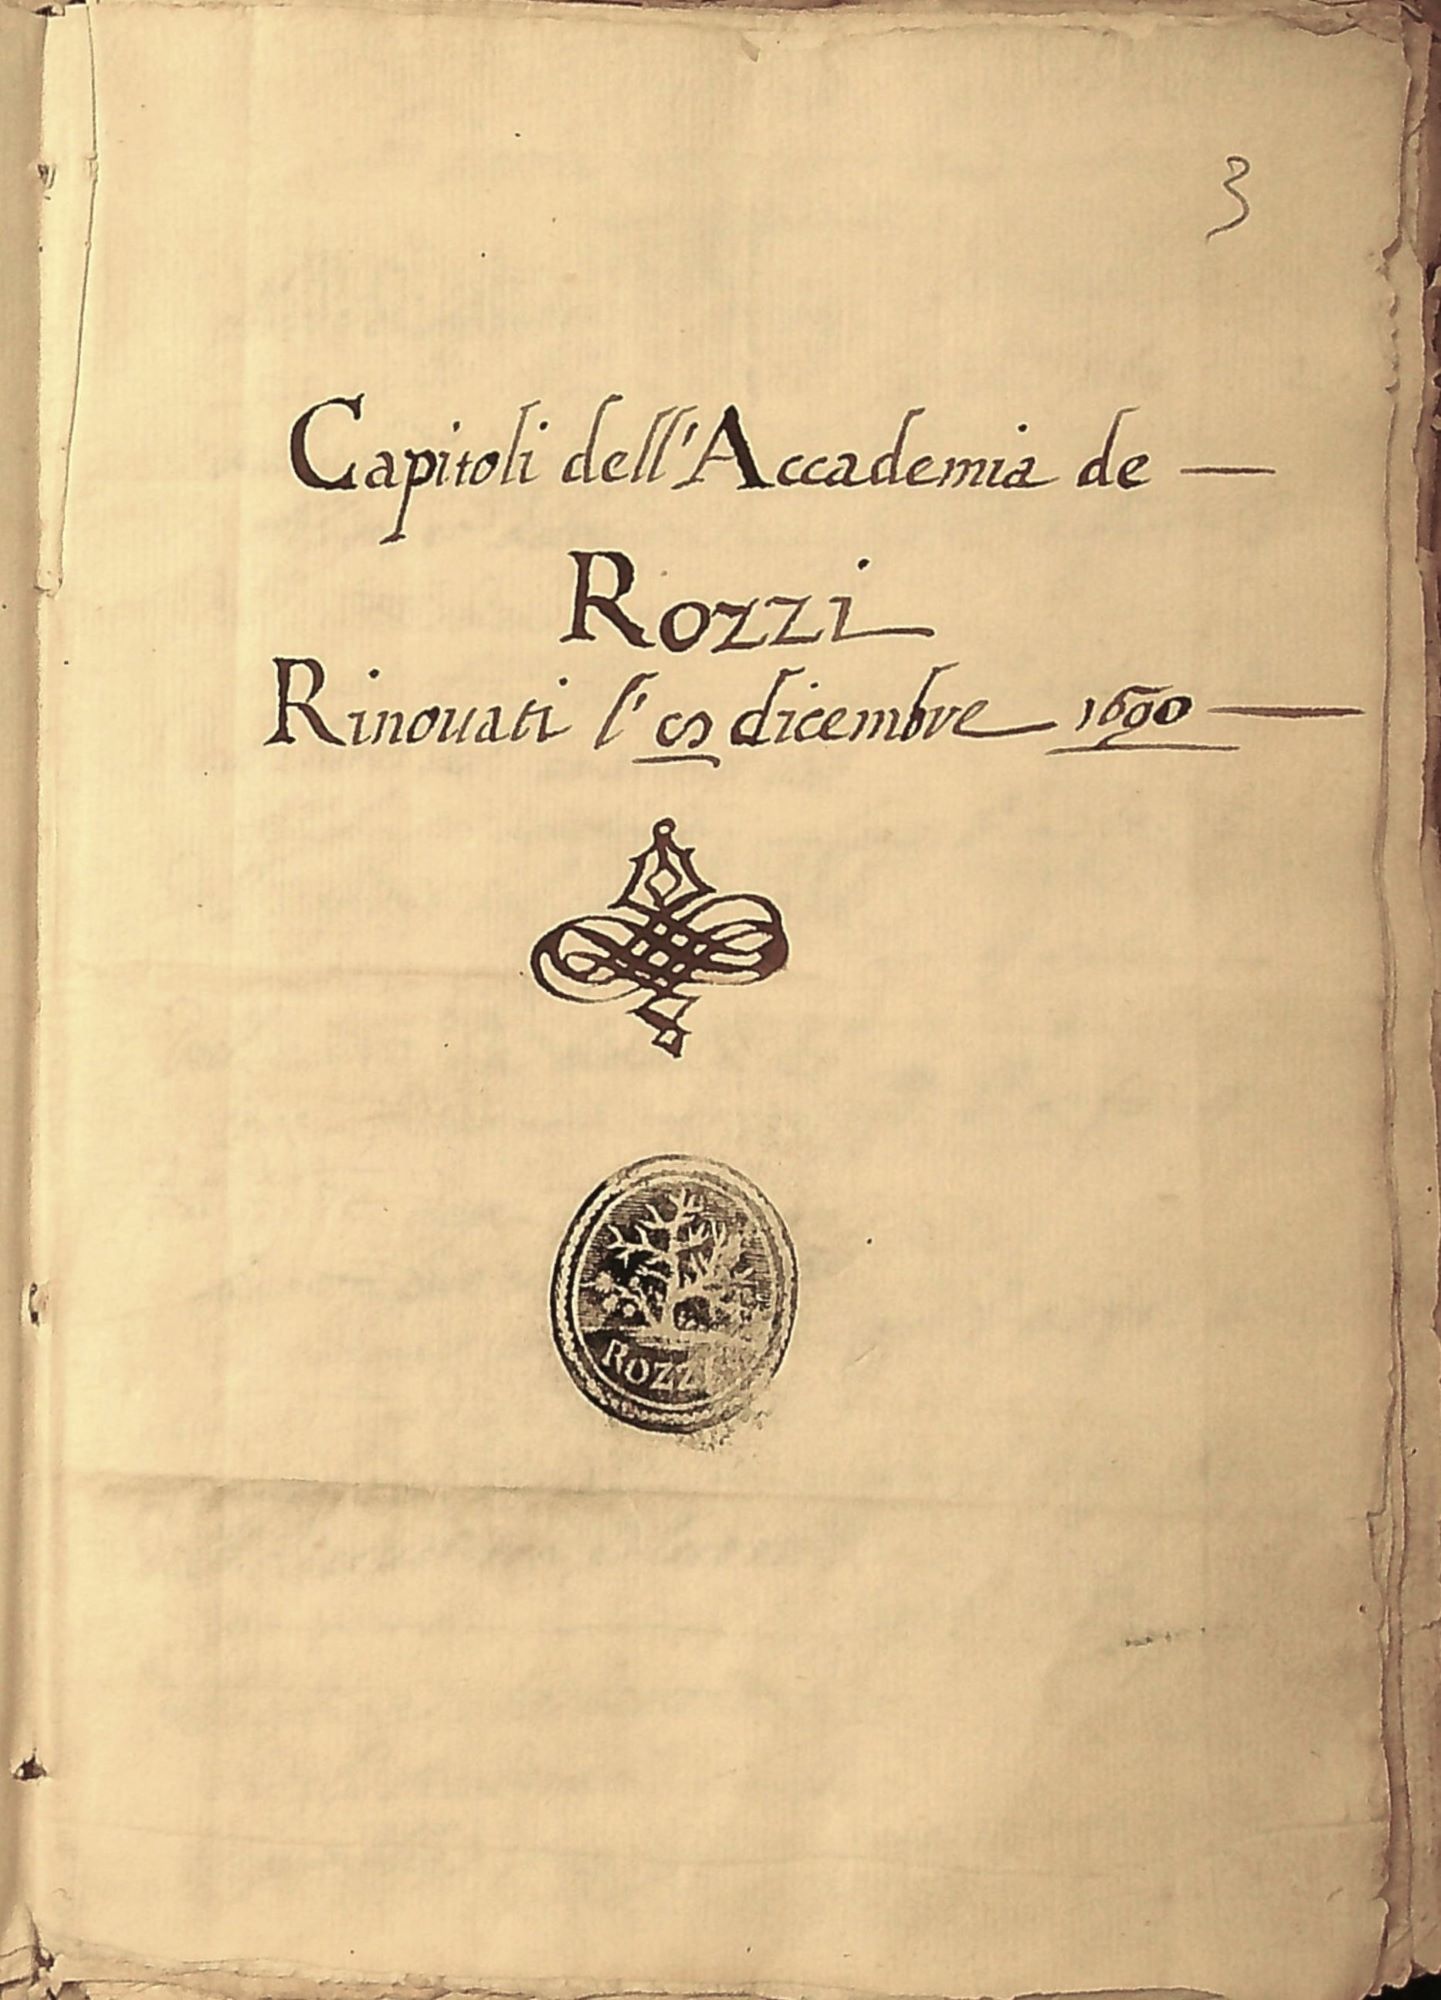 3
Capitoli dell'Accademia de —
Rozzi
Rinouati l' dicembre 1690 —
ROZZI